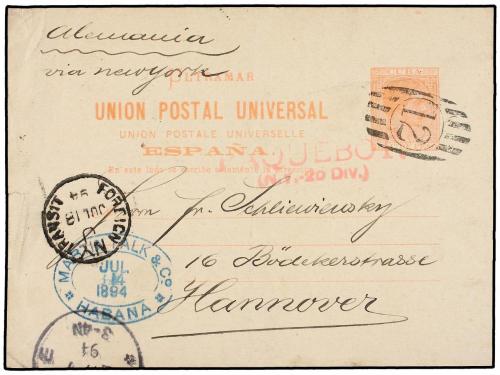 Alemania
via new York
ULTRAMAR
CUBA
UNION POSTAL UNIVERSAL
UNION POSTALE UNIVERSELLE
ESPAÑA
12
PAQUEBOT
(N.Y. 2D DIV.)
En este lado se escribe solamente la
Herrn Fr. Schliewiensky
NY FOREIGN TRANSIT
JUL 18
94
16 Bödekerstrasse
MARX FALK & Co
JUL
14
1894
HABANA
Hannover
3-4N
94